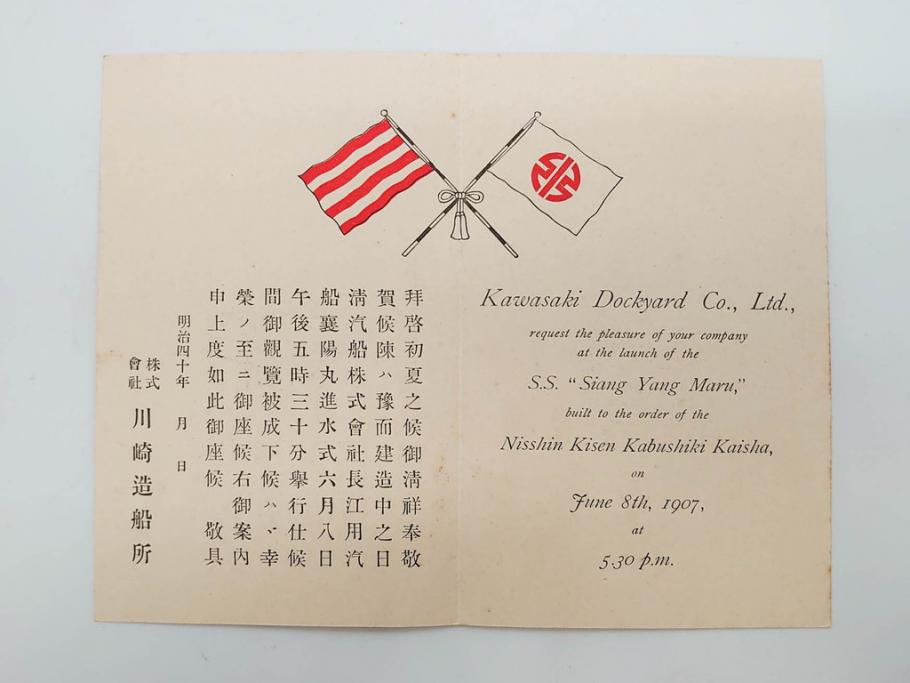 拜啓初夏之候御淸祥奉敬
賀候陳ハ豫而建造中之日
淸汽船株式會社長江用汽
船襄陽丸進水式六月八日
午後五時三十分擧行仕候
間御觀覽被成下候ハヾ幸
榮ノ至ニ御座候右御案內
申上度如此御座候 敬具
明治四十年 月 日
株式會社 川崎造船所
Kawasaki Dockyard Co., Ltd.,
request the pleasure of your company
at the launch of the
S.S. “Siang Yang Maru,”
built to the order of the
Nisshin Kisen Kabushiki Kaisha,
on
June 8th, 1907,
at
5.30 p.m.